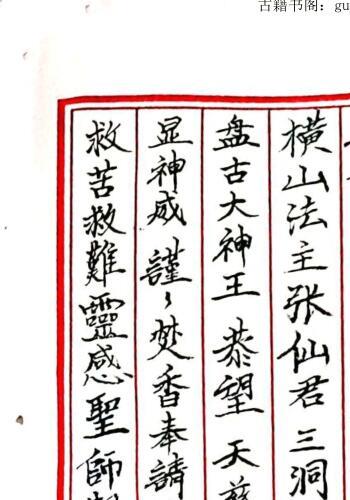 古籍书阁：gu
橫山法主张仙君三洞
盘古大神王恭望天慈
显神威謹〻焚香奉請
救苦救難靈感聖師